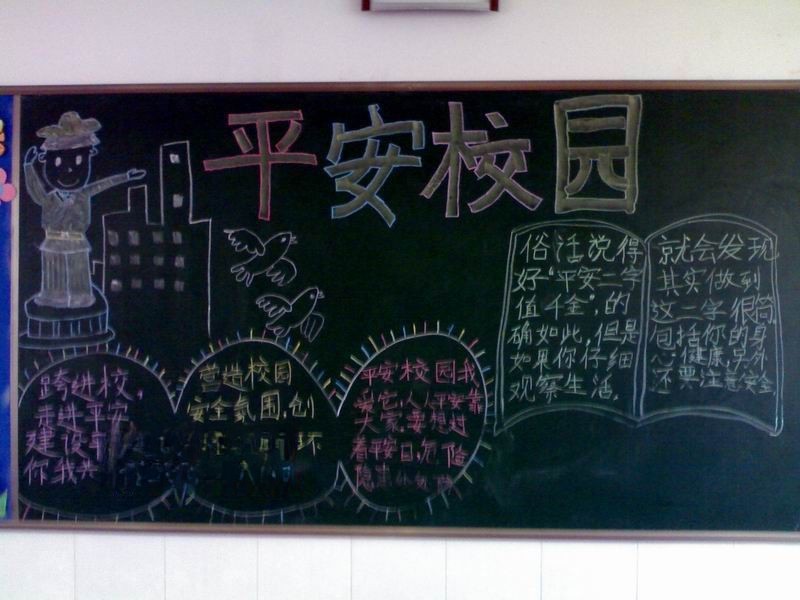 平安校园
跨进校,
走进平安
建设
你我共
营造校园
安全氛围,创
环
平安校园我
爱它,人人平安靠
大家,要想过
着平安日,危险
隐患
俗话说得
好“平安二字
值千金”,的
确如此,但是
如果你仔细
观察生活,
就会发现
其实做到
这二字很简
包括你的身
心健康,另外
还要注意安全